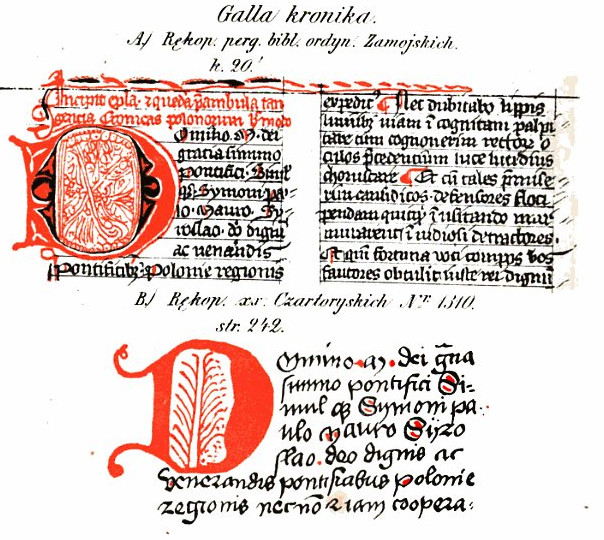 Galla kronika.
A) Rękop. perg. bibl. ordyn. Zamojskich.
k. 20.
Incipit epla ⁊ queda pambula tan
gencia Cronicas polonorum
Domino. M. dei
gracia summo
pontifici. Simul
qȝ. Symoni pa-
lo. Mauro. Sy
roslao. do dign
ac venandis
pontificibȝ. Polonie regionis
expedic. Nec dubitabo lippis
viam ī cognitam palpi
tare cum cognouerim rectore o
culos pcedencium luce lucidius
choruscare. Et cū tales pmise
rim causidicos. defensores floci
pendam quicqͥ inuitando mur
murauerit īuidiosi detractores.
Et qm fortuna voti compos vos
fautores obtulit iuste rei dignū
B) Rękop. xv. Czartoryskich Nr. 1310.
str. 242.
Domino. M. dei gͣna
summo pontifici Si-
mul qȝ Symoni pa-
ulo Mauro Syro
slao. deo dignis ac
venerandis pontificabus polonie
regionis necnō Riam coopera-